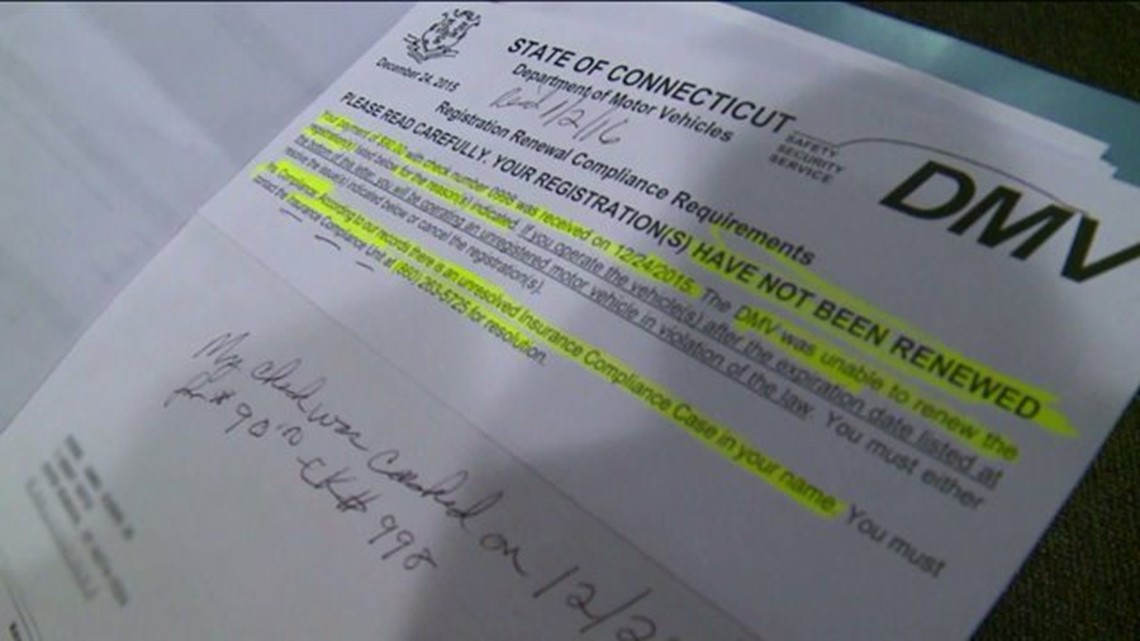 STATE OF CONNECTICUT
Department of Motor Vehicles
December 24, 2015
Rec'd 1/2/16
SAFETY
SECURITY
SERVICE
DMV
Registration Renewal Compliance Requirements
PLEASE READ CAREFULLY. YOUR REGISTRATION(S) HAVE NOT BEEN RENEWED
Your payment of $90.00 with check number 0998 was received on 12/24/2015. The DMV was unable to renew the
registration(s) listed below for the reason(s) indicated. If you operate the vehicle(s) after the expiration date listed at
the bottom of this letter, you will be operating an unregistered motor vehicle in violation of the law. You must either
resolve the issue(s) indicated below or cancel the registration(s).
Compliance: According to our records there is an unresolved Insurance Compliance Case in your name. You must
contact the Insurance Compliance Unit at (860) 263-5725 for resolution.
My check was cashed on 12/2
for $90.00 - CK# 998